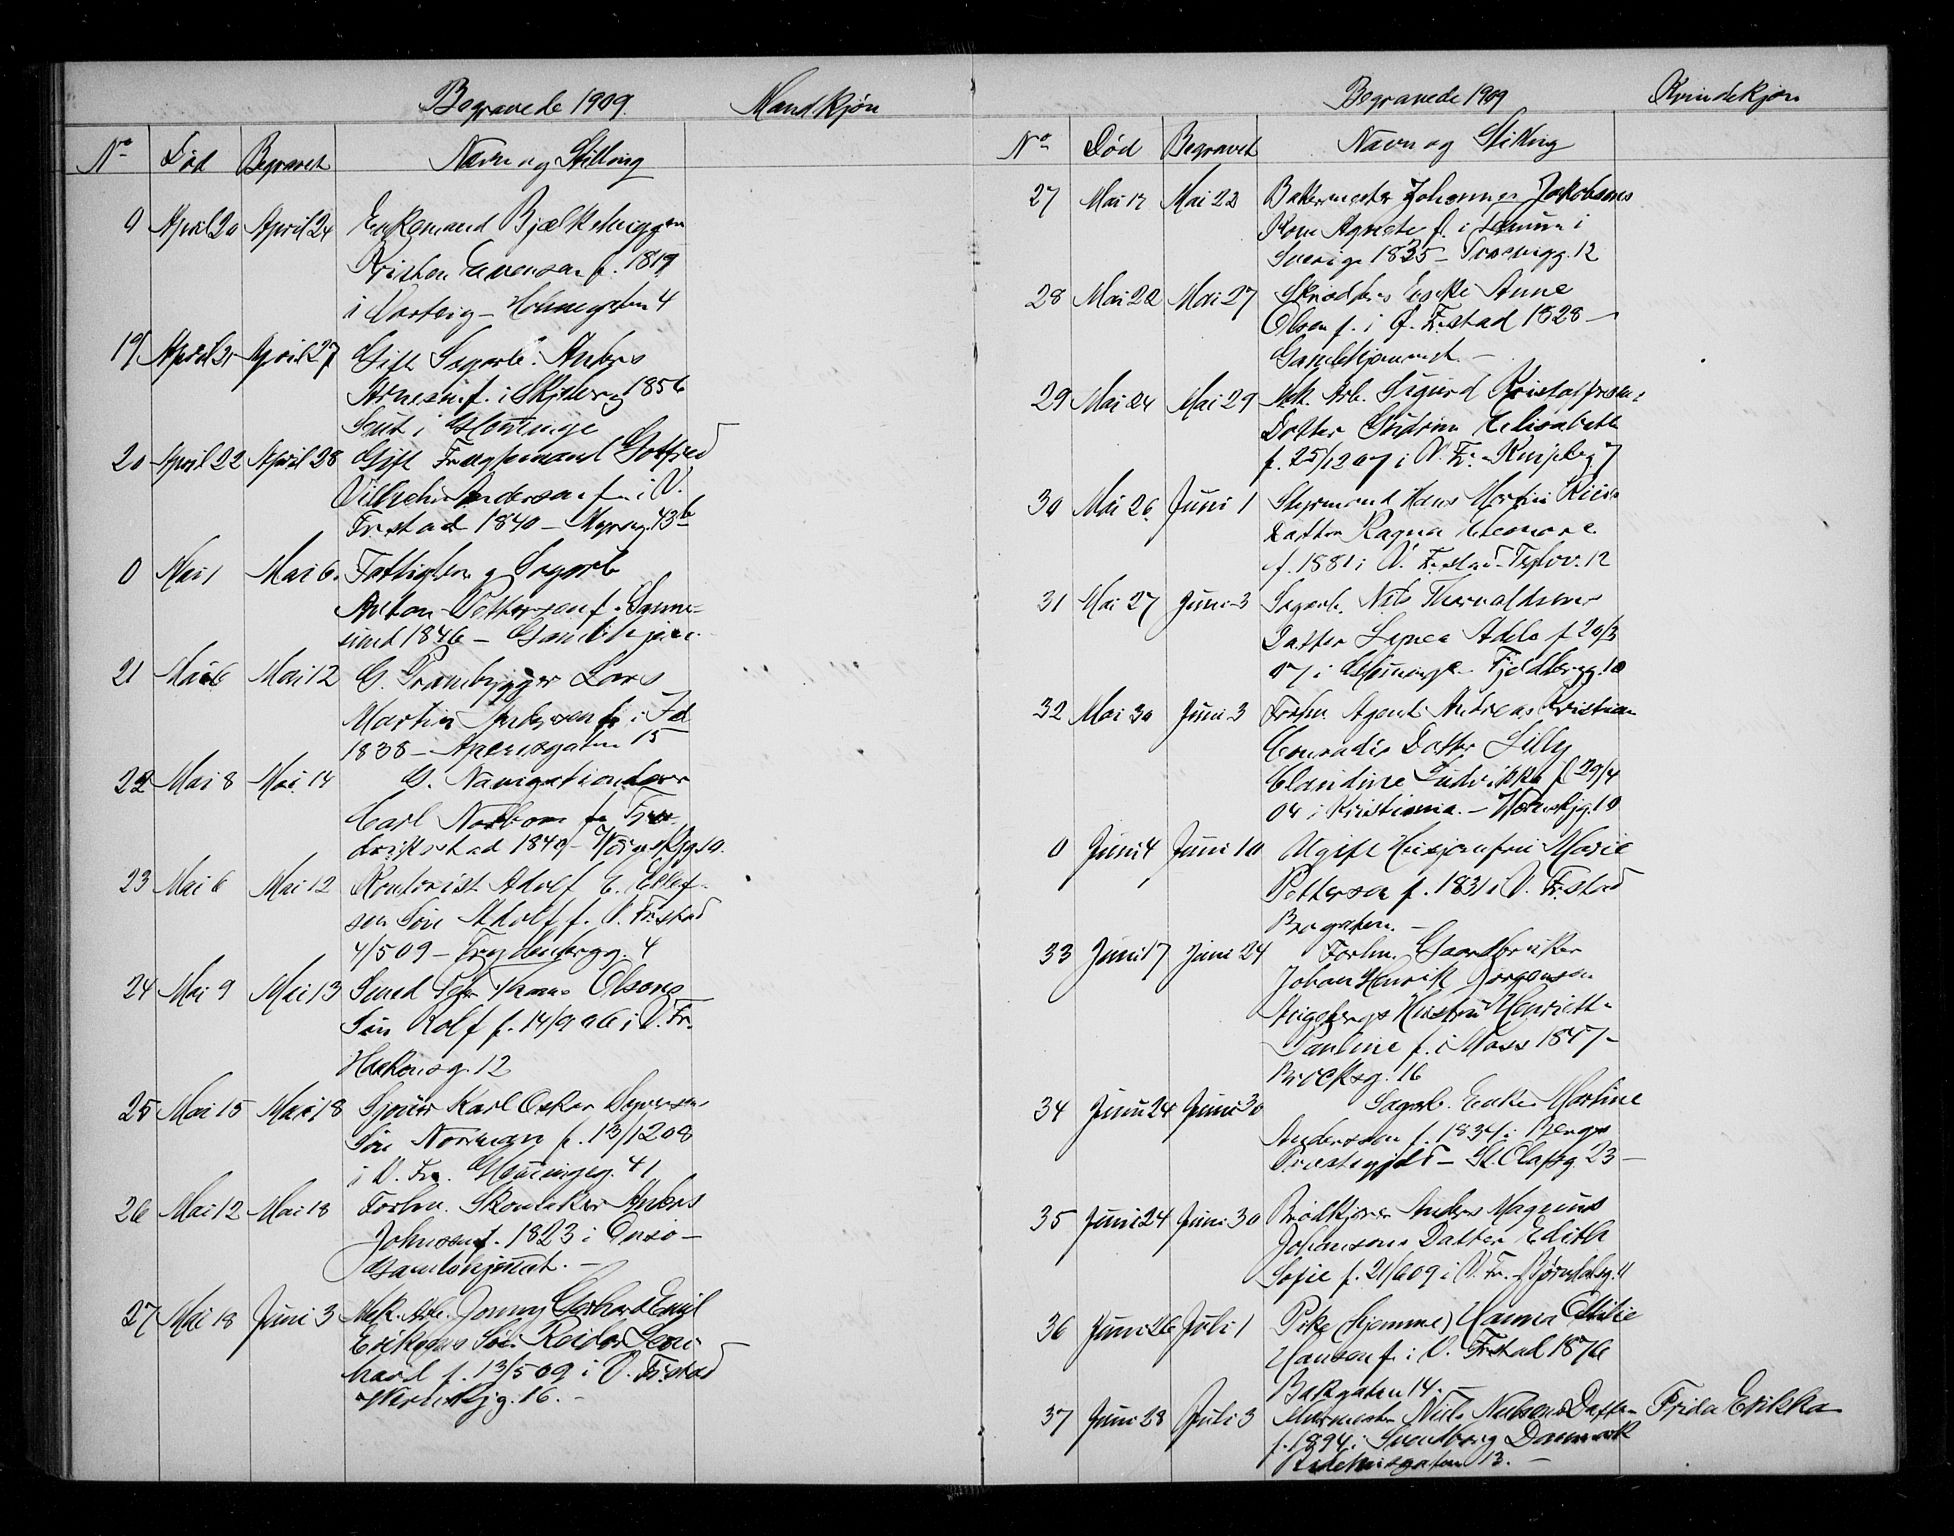 Begravede 1909. Mandkjøn
No Død Begravet Navn og Stilling
0 April 20 April 24 Enkemand Bjælkehugger
Kristen Evensen f. 1819
i Varteig - Holmegaten 4
19 April 21 April 27 Gift Sagarb. Anders
Arnesen f. i Skjeberg 1856
i Glemminge
20 April 22 April 28 Gift Fragtemand Gotfred
Vilhelm Andersen f. i V.
Fr.stad 1840 -
0 Mai 1 Mai 6. Fattiglem g. Sagarb
Anton Pettersen f. Sanne-
sund 1846 - Gamlehjem
21 Mai 6 Mai 12 G. Prambygger Lars
Martin Andersen f. i Id
1838 - Apenesgaten 15
22 Mai 8 Mai 14 G. Navigationslærer
Carl Norbom f. Fre-
drikstad 1840 - Wernskjg 50.
23 Mai 6 Mai 12 Kontorist Adolf E.
sen Søn Adolf f. V. Fr.stad
4/5 09 - Frydenbergg. 4
24 Mai 9 Mai 13 Smed Peter Thomas Olsens
Søn Rolf f. 14/9 06 i V. Fr.
Haakonsg. 12
25 Mai 15 Mai 18 Sjauer Karl Oskar
Søn Norman f. 13/12 08
i V. Fr. Glemmingeg. 41
26 Mai 12 Mai 18 Forhv. Skomaker Anders
Johnsen f. 1823 i Onsø -
Gamlehjemmet. -
27 Mai 18 Juni 3 Mek. Arb. Jonny Gerhard Emil
Eriksens Søn Reidar Leon-
hard f. 13/5 09 i V. Fr.stad
Wernskjg. 16. -
Begravede 1909 Kvindekjøn
No Død Begravet Navn og Stilling
27 Mai 17 Mai 22 Bakermester Johannes Jakobsens
Kone Agnete f. i Tanum i
Sverige 1835 - Trosvigg. 12
28 Mai 22 Mai 27 Skrædders Enke Anne
Olsen f. i Ø. Fr.stad 1828 -
Gamlehjemmet. -
29 Mai 24 Mai 29 Mek. Arb. Sigurd Kristoffersens
Datter Gudrun Elisabeth
f. 25/12 07 i V. Fr. -
30 Mai 26 Juni 1 Styrmand Hans Martin
Datter Ragna Eleonore
f. 1881 i V. Fr.stad 12
31 Mai 27 Juni 3 Sagarb. Nils Thorvaldsens
Datter Signea Adele f. 20/3
07 i Glemminge - Fjeldbergg. 10
32 Mai 30 Juni 3 Forhv. Agent Andreas Kristian
Conradis Datter Lilly
Claudine Ludvikka f. 29/4
04 i Kristiania. - Wernskjg. 10
0 Juni 4 Juni 10 Ugift Husjomfru Marie
Pettersen f. 1831 i V. Fr.stad
Brogaten. -
33 Juni 17 Juni 24 Forhv. Gaardbruker
Johan Henrik Jørgensen
Hustru Henriette
Pauline f. i Moss 1847 -
Brocksg. 16
34 Juni 24 Juni 30 Sagarb. Enke Martine
Andersson f. 1834 i Bergs
Præstegjeld - St. Olafsg. 23 -
35 Juni 24 Juni 30 Brødkjører Anders Magnus
Johansens Datter Edith
Sofie f. 21/6 09 i V. Fr. - 11
36 Juni 26 Juli 1 Pike (hjemme) Hanna Othilie
Hansen f. i V. Fr.stad 1876
Bakgaten 14. -
37 Juni 28 Juli 3 Murmester Niels Nielsens Datter Frida Erikka
f. 1894 i Svendborg Danmark
Ridehusgaten 13. -